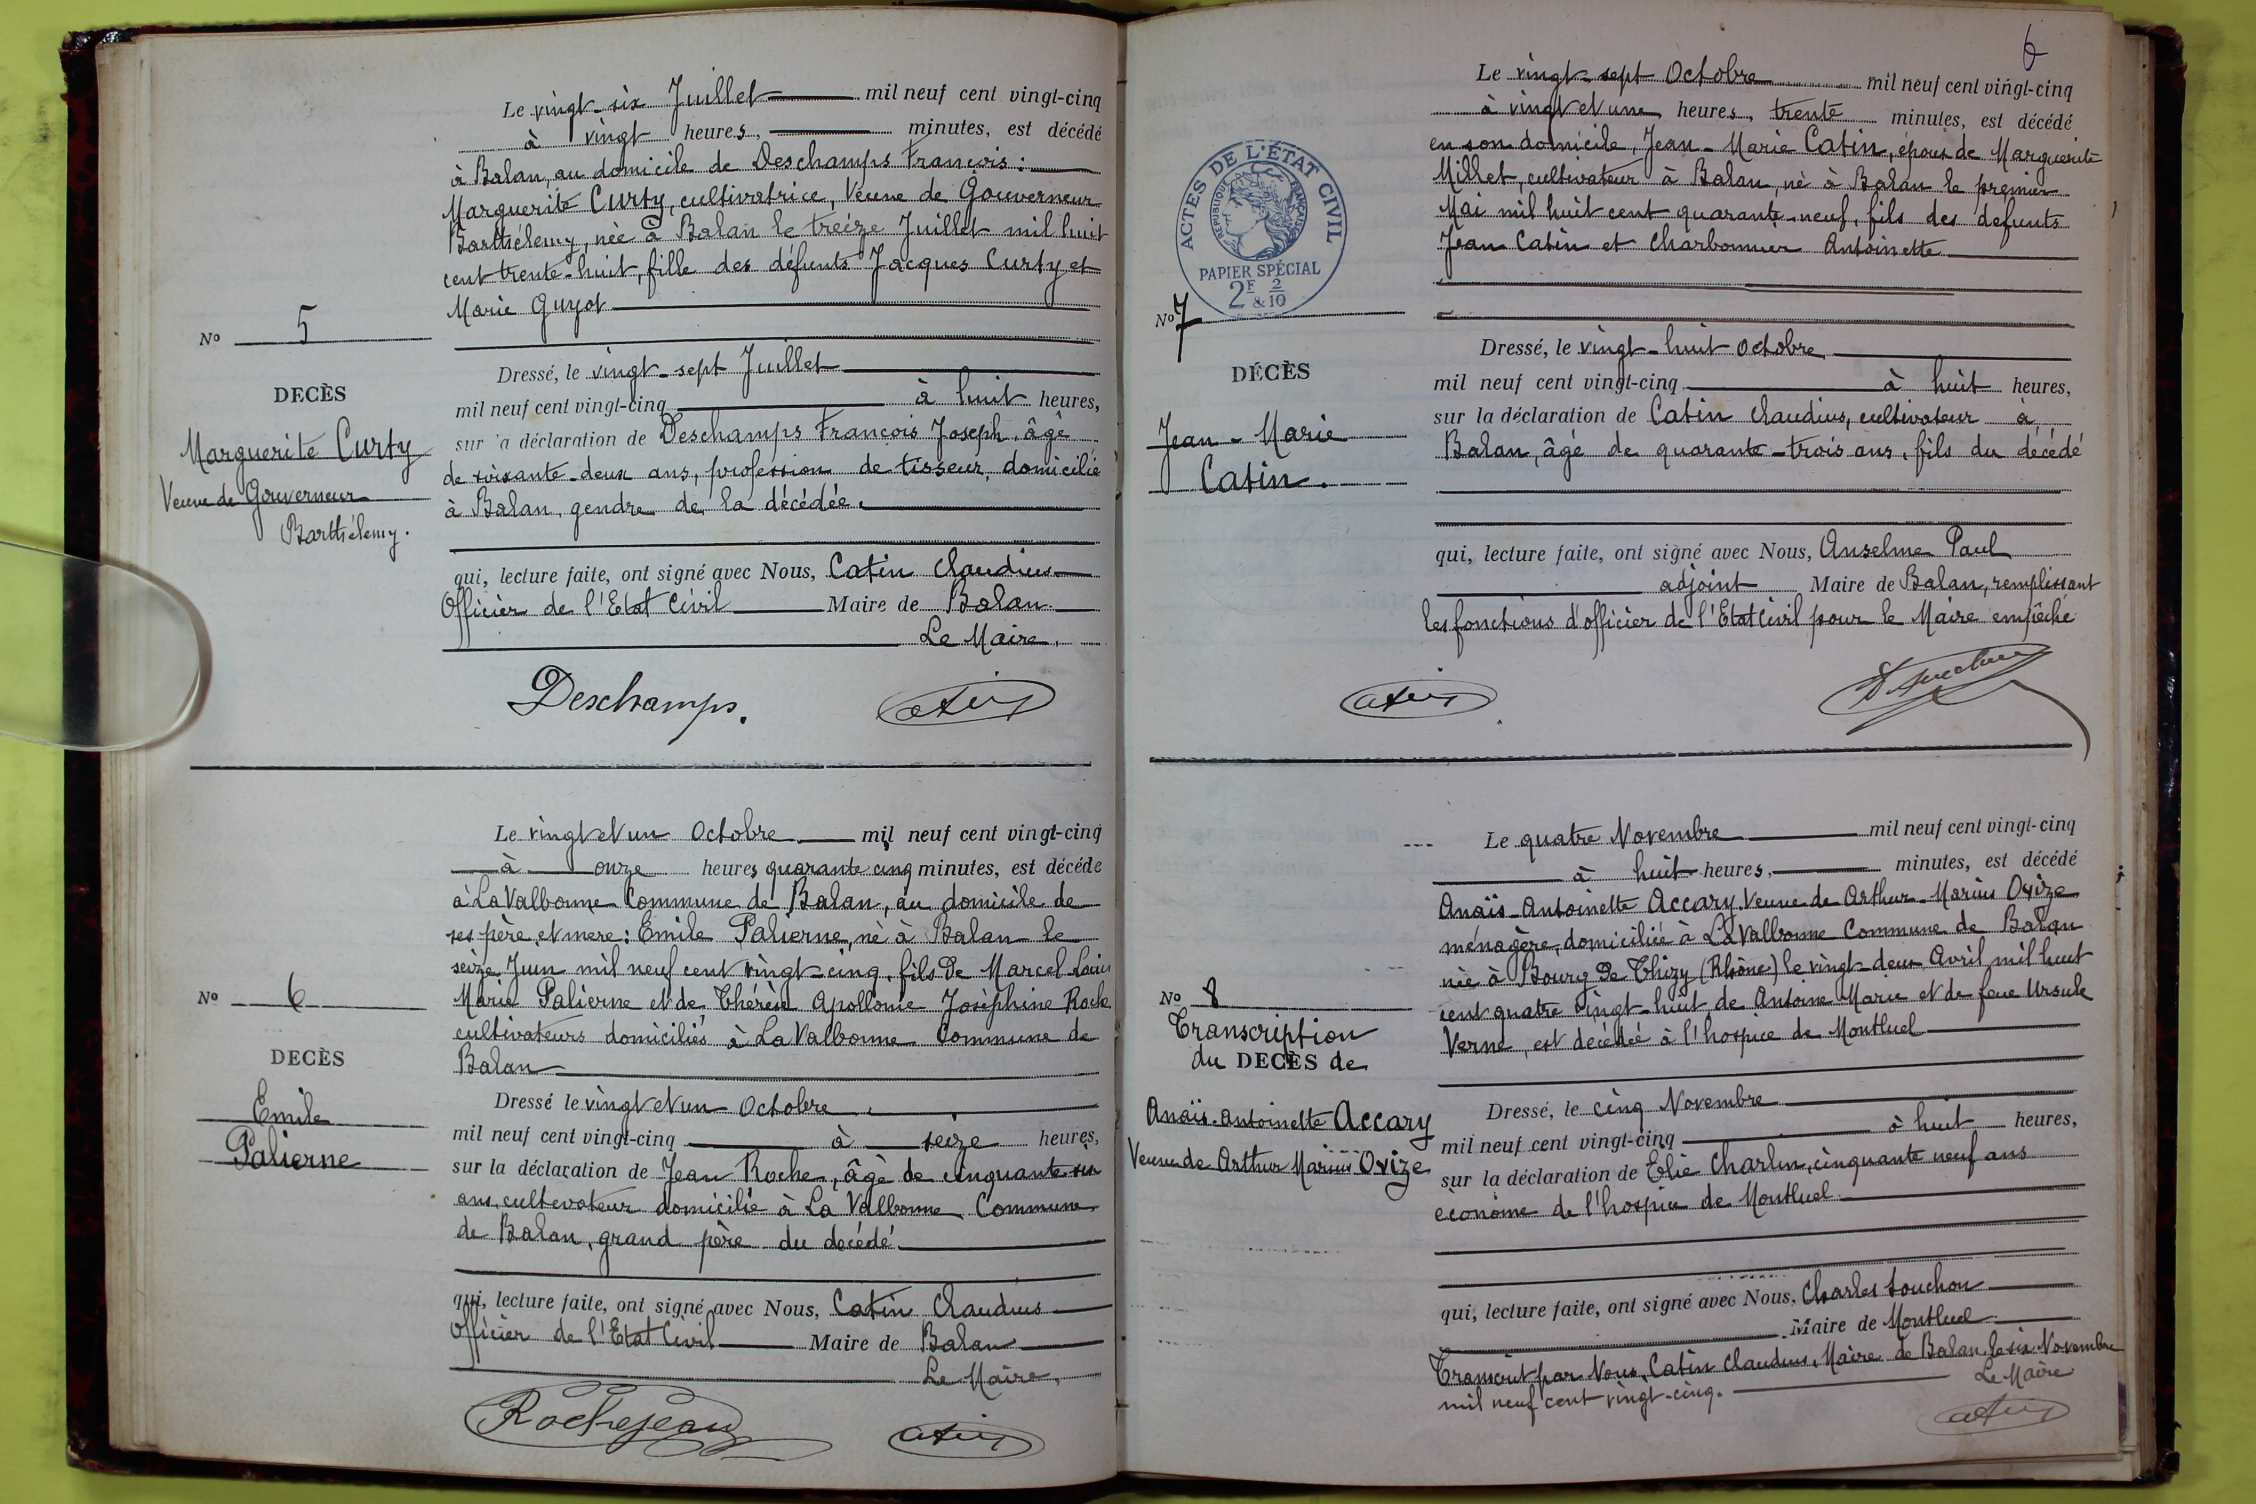 Le vingt-six Juillet mil neuf cent vingt-cinq
à vingt heures, minutes, est décédé
à Balan, au domicile de Deschamps François :
Marguerite Curty, cultivatrice, Veuve de Gouverneur
Barthélemy, née à Balan le treize Juillet mil huit
cent trente-huit, fille des défunts Jacques Curty et
Marie Guyot
No 5
Dressé, le vingt-sept Juillet
DECÈS
mil neuf cent vingt-cinq à huit heures,
sur la déclaration de Deschamps François Joseph, âgé
Marguerite Curty
de soixante-deux ans, profession de tisseur, domicilié
Veuve de Gouverneur
à Balan, gendre de la décédée.
Barthélemy.
qui, lecture faite, ont signé avec Nous, Catin Claudius
Officier de l'Etat Civil Maire de Balan
Le Maire,
Deschamps. Catin
Le vingt et un Octobre mil neuf cent vingt-cinq
à onze heures quarante cinq minutes, est décédé
à La Valbonne Commune de Balan, au domicile de
ses père et mere : Emile Palierne, né à Balan le
seize Juin mil neuf cent vingt-cinq, fils de Marcel Louis
No 6
Marie Palierne et de Thérèse Apollonie Joséphine Roche
cultivateurs domiciliés à La Valbonne Commune de
DECÈS
Balan
Emile
Dressé le vingt et un Octobre
Palierne
mil neuf cent vingt-cinq à seize heures,
sur la déclaration de Jean Roche, âgé de cinquante-six
ans, cultivateur domicilié à La Valbonne Commune
de Balan, grand père du décédé.
qui, lecture faite, ont signé avec Nous, Catin Claudius
Officier de l'Etat Civil Maire de Balan
Le Maire,
Rochejean Catin
6
Le vingt-sept Octobre mil neuf cent vingt-cinq
à vingt et une heures, trente minutes, est décédé
en son domicile, Jean-Marie Catin, époux de Marguerite
Millet, cultivateur à Balan, né à Balan le premier
Mai mil huit cent quarante-neuf, fils des défunts
Jean Catin et Charbonnier Antoinette
ACTES DE L'ÉTAT CIVIL
REPUBLIQUE FRANÇAISE
PAPIER SPÉCIAL
2F & 2/10
No 7
Dressé, le vingt-huit Octobre
DÉCÈS
mil neuf cent vingt-cinq à huit heures,
sur la déclaration de Catin Claudius, cultivateur à
Jean-Marie
Balan, âgé de quarante-trois ans, fils du décédé
Catin.
qui, lecture faite, ont signé avec Nous, Anselme Paul
adjoint Maire de Balan, remplissant
les fonctions d'officier de l'Etat Civil pour le Maire empêché
Catin
Le quatre Novembre mil neuf cent vingt-cinq
à huit heures, minutes, est décédé
Anaïs-Antoinette Accary Veuve de Arthur-Marius Ovize
ménagère, domiciliée à La Valbonne Commune de Balan
née à Bourg de Thizy (Rhône) le vingt-deux Avril mil huit
No 8
cent quatre vingt-huit, de Antoine Marie et de feue Ursule
Transcription
Verne, est décédée à l'hospice de Montluel
du DECÈS de
Dressé, le cinq Novembre
Anaïs-Antoinette Accary
mil neuf cent vingt-cinq à huit heures,
Veuve de Arthur Marius Ovize
sur la déclaration de Elie Charlin, cinquante neuf ans
économe de l'hospice de Montluel
qui, lecture faite, ont signé avec Nous, Charles Souchon
Maire de Montluel
Transcrit par Nous, Catin Claudius, Maire de Balan, le six Novembre
mil neuf cent vingt-cinq. Le Maire
Catin